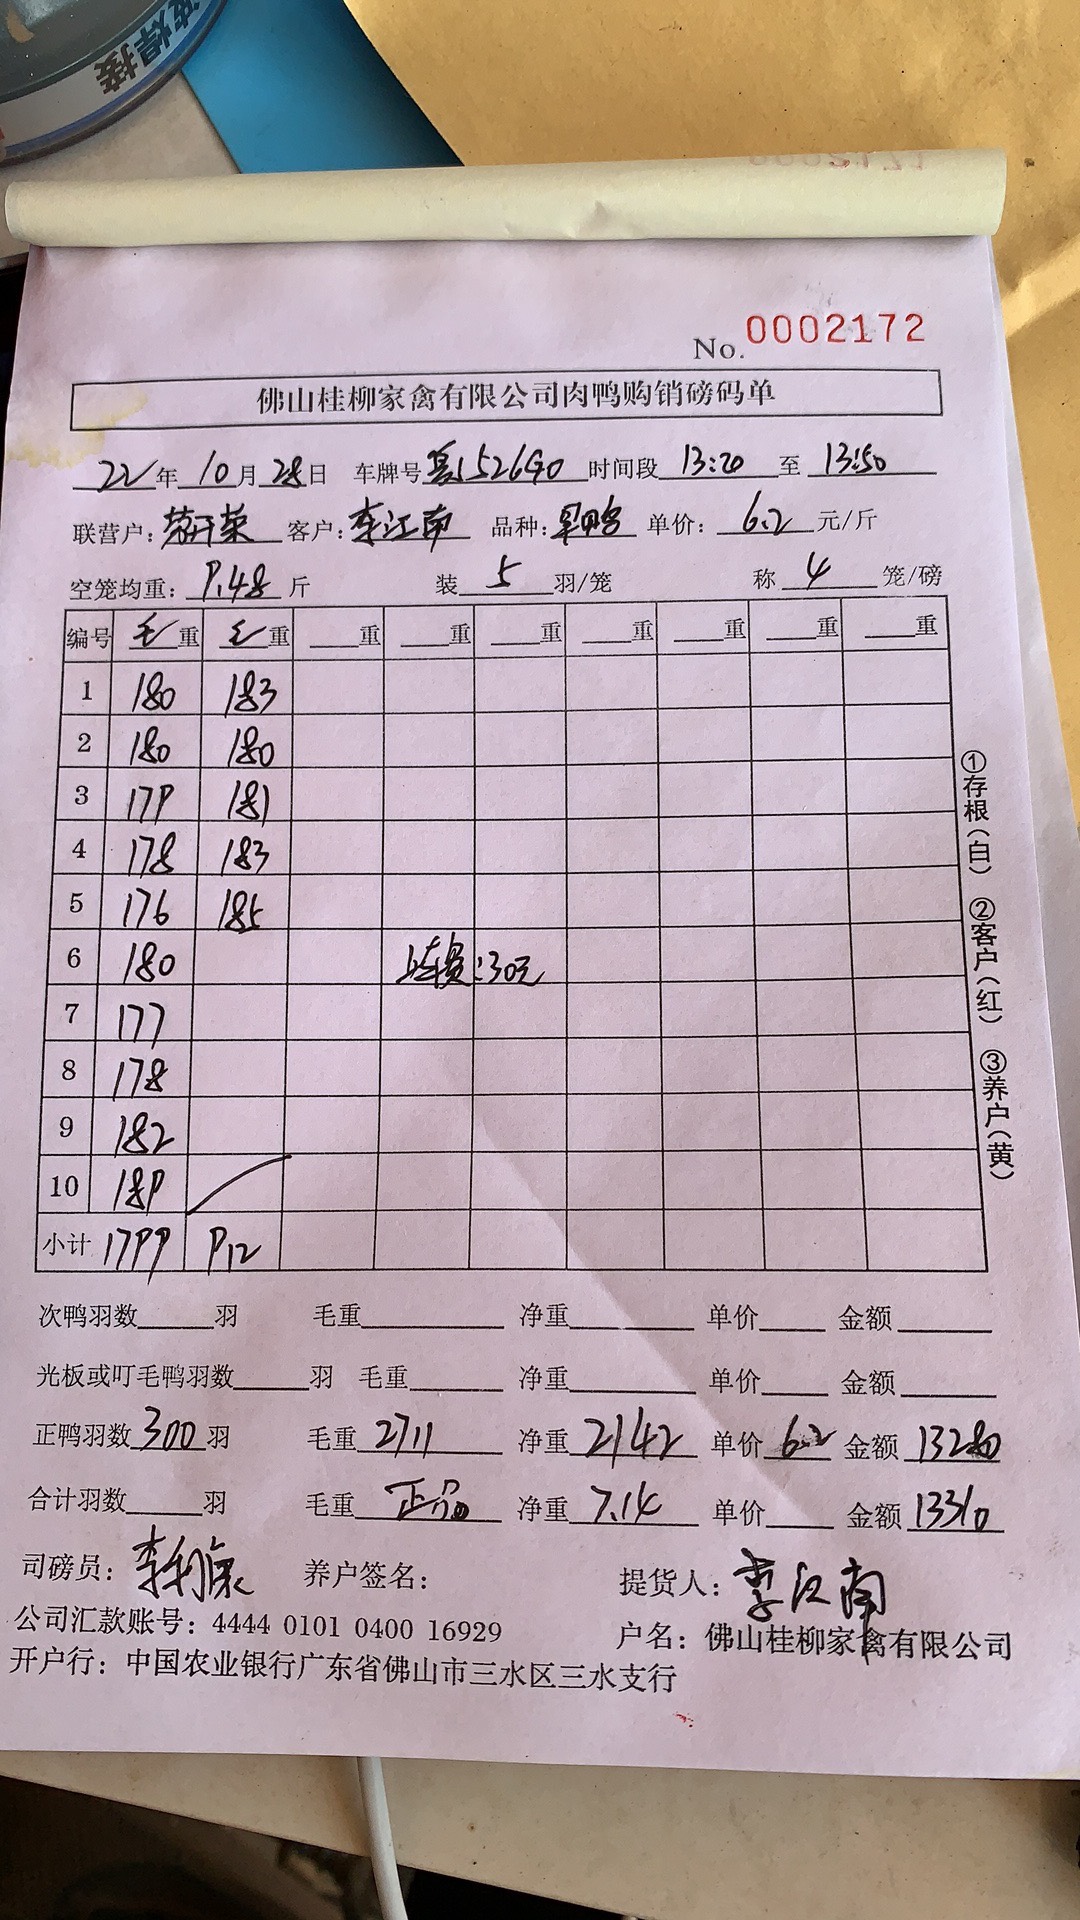 焊接
No. 0002172
佛山桂柳家禽有限公司肉鸭购销磅码单
22年10月28日 车牌号 526G0 时间段 13:20 至 13:50
联营户: 客户:李江南 品种: 单价: 6.2 元/斤
空笼均重: 9.48 斤 装 5 羽/笼 称 4 笼/磅
编号 毛重 毛重 重 重 重 重 重 重 重
1 180 183
2 180 180
3 179 181
4 178 183
5 176 185
6 180 上车费:30元
7 177
8 178
9 182
10 189
小计 1799 912
①存根(白) ②客户(红) ③养户(黄)
次鸭羽数 羽 毛重 净重 单价 金额
光板或叮毛鸭羽数 羽 毛重 净重 单价 金额
正鸭羽数 300 羽 毛重 2711 净重 2142 单价 6.2 金额 13280
合计羽数 羽 毛重 正品 净重 7.14 单价 金额 13310
司磅员: 养户签名: 提货人: 李江南
公司汇款账号: 4444 0101 0400 16929 户名: 佛山桂柳家禽有限公司
开户行: 中国农业银行广东省佛山市三水区三水支行